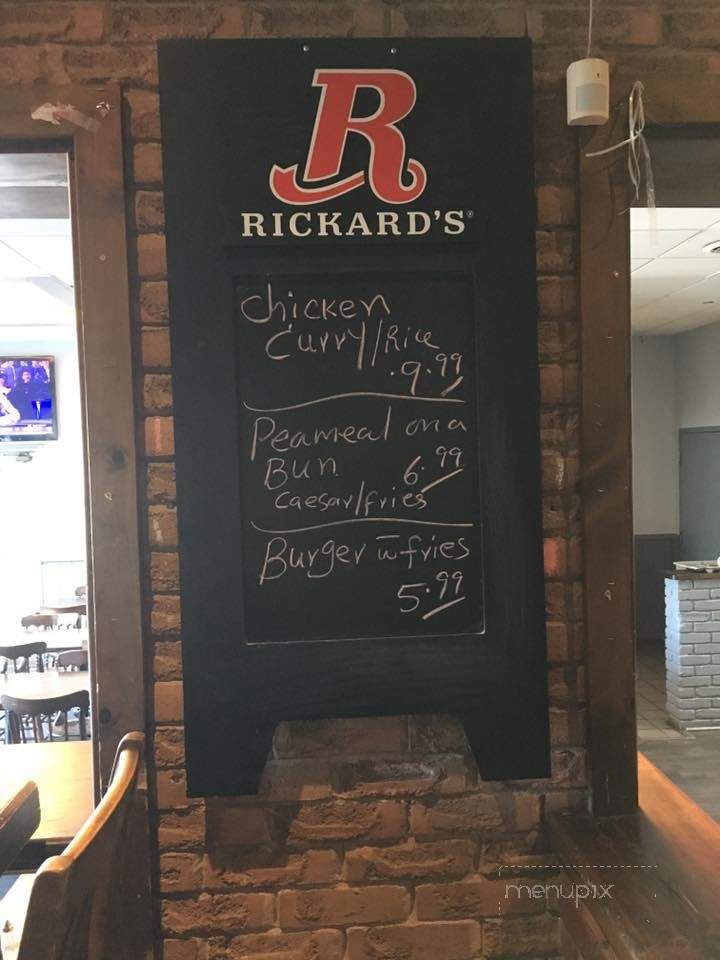 R
RICKARD'S®
Chicken
Curry/Rice
.9.99
Peameal on a
Bun 6.99
Caesar/fries
Burger w fries
5.99
menupix